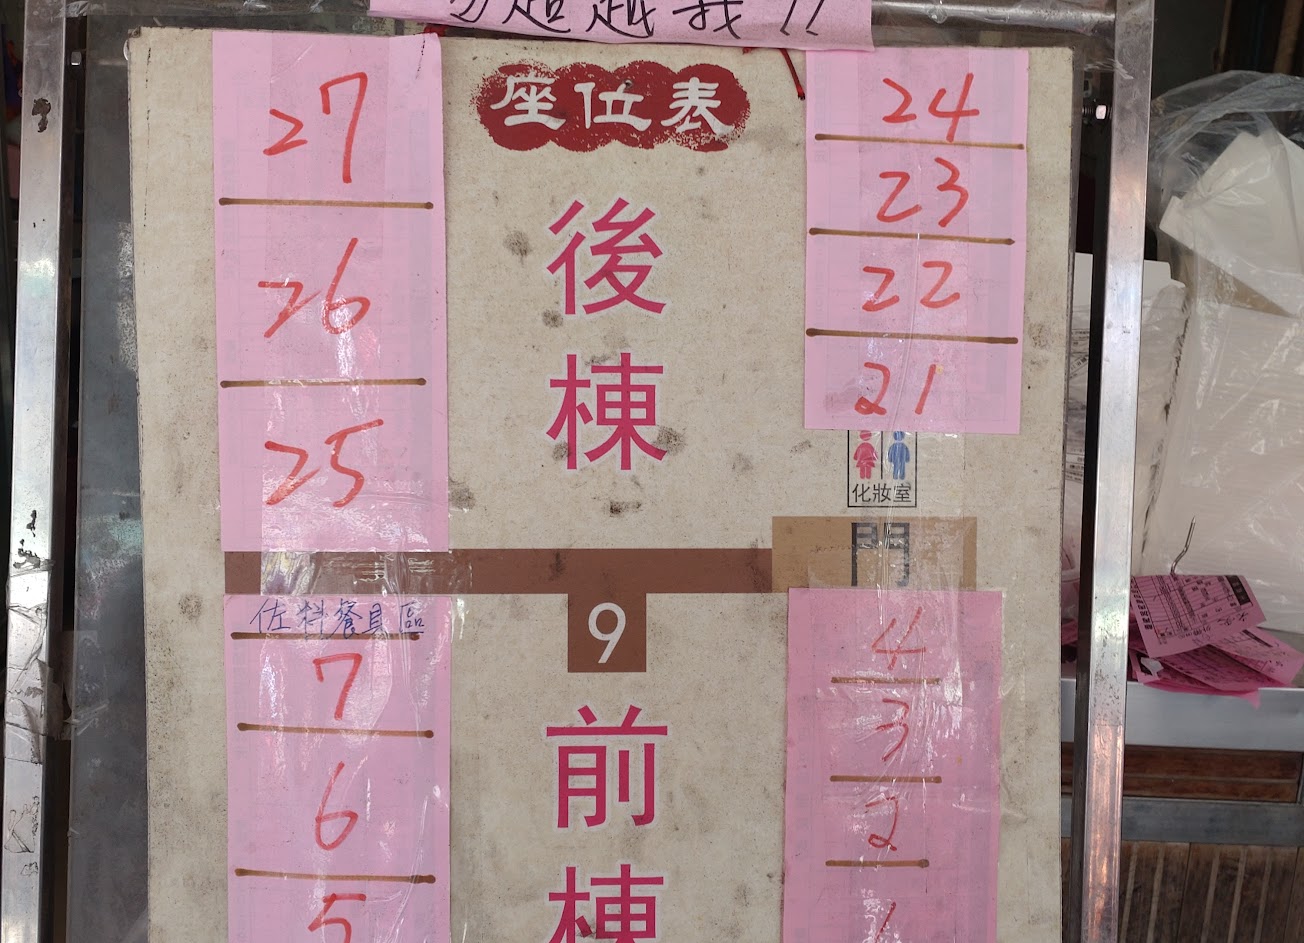 勿超越我!!
座位表
27
26
25
後棟
24
23
22
21
化妝室
門
佐料餐具區
7
6
5
9
前棟
4
3
2
1